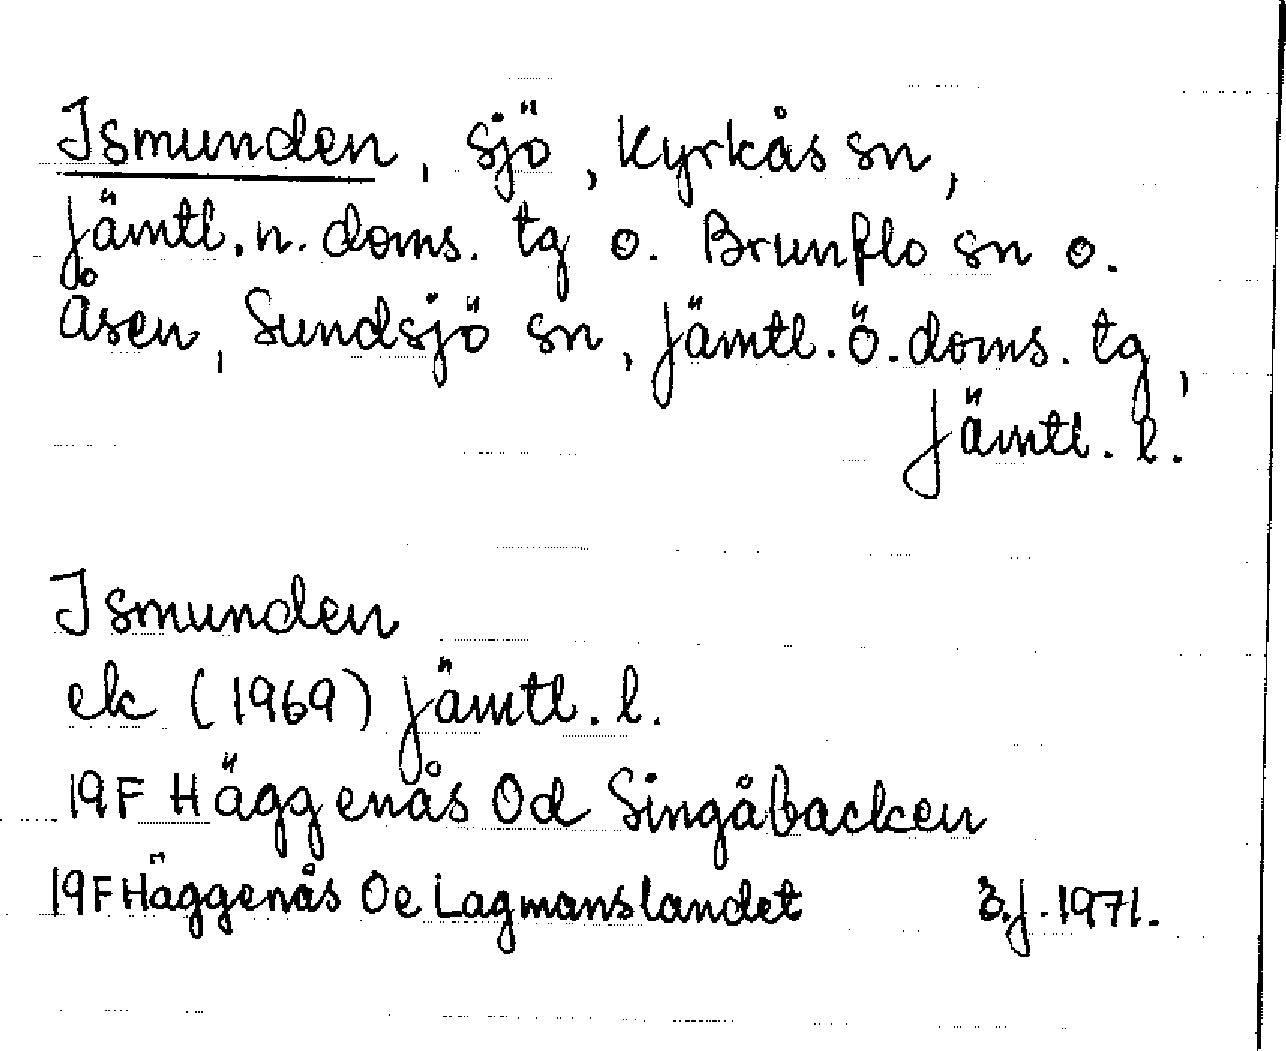 Ismunden, sjö, Kyrkås sn,
Jämtl. n. doms. tg o. Brunflo sn o.
Åsen, Sundsjö sn, Jämtl. ö. doms. tg,
Jämtl. l.
Ismunden
ek (1969) Jämtl. l.
19F Häggenås 0d Singåbacken
19F Häggenås 0e Lagmanslandet ö.j. 1971.